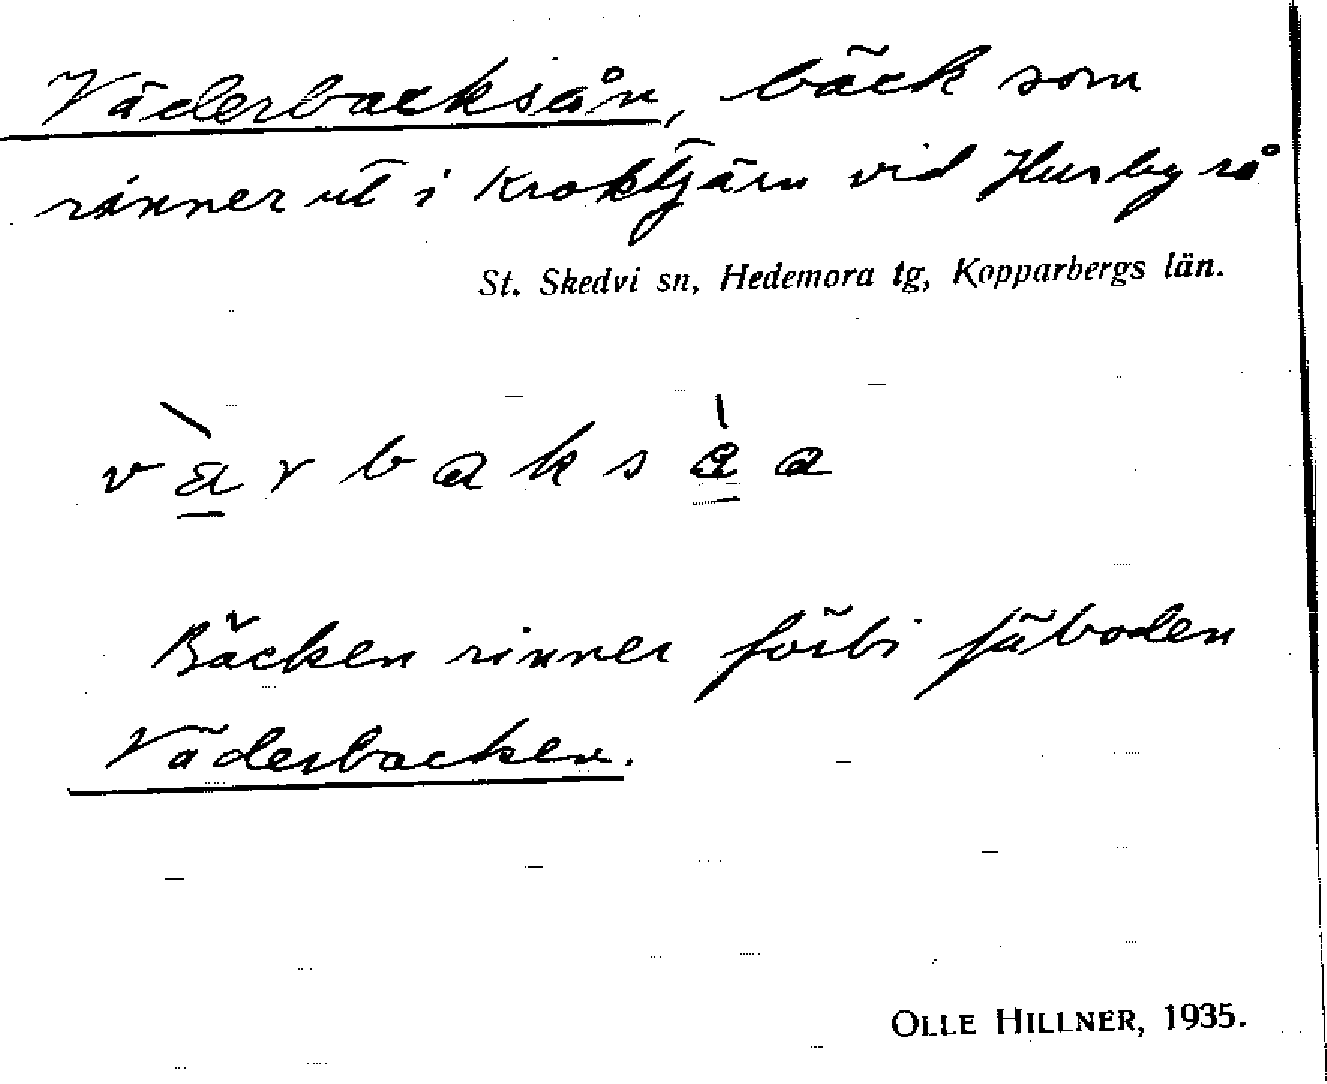 Väderbacksån, bäck som
rinner ut i Kroktjärn vid Husby rå
St. Skedvi sn, Hedemora tg, Kopparbergs län.
vä̀rbaksàa
Bäcken rinner förbi fäboden
Väderbacken.
OLLE HILLNER, 1935.